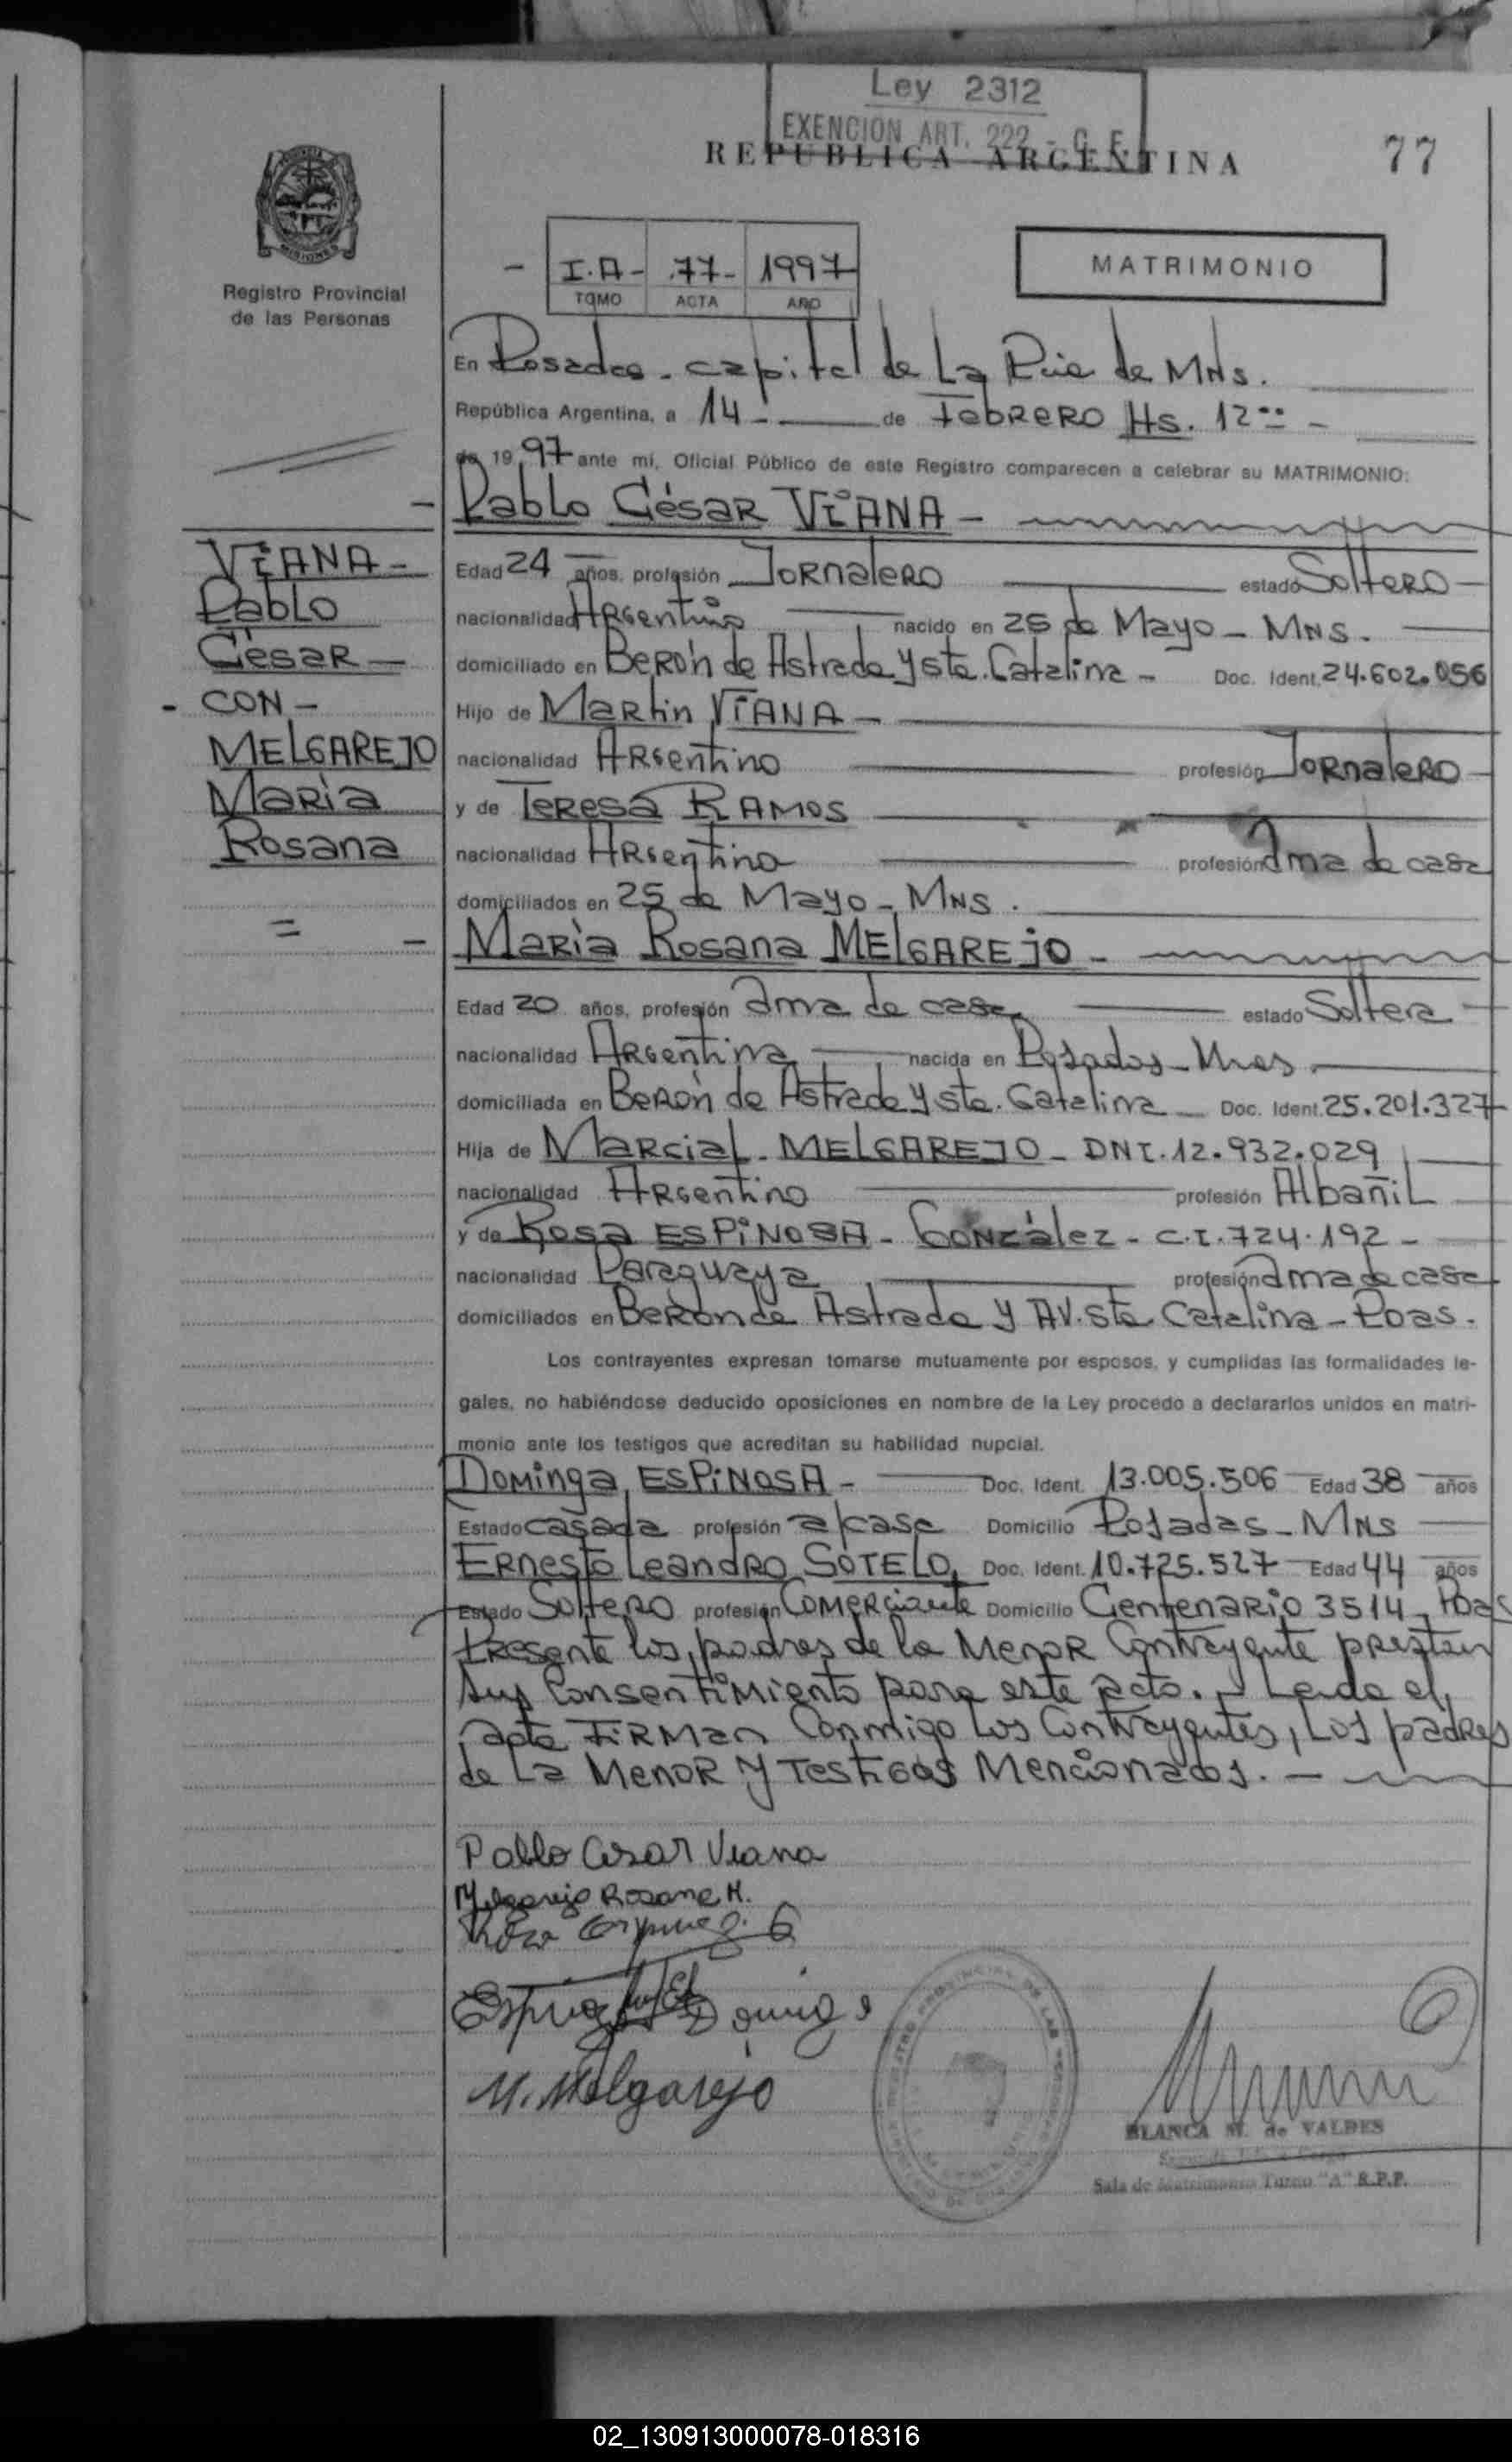 Ley 2312
EXENCION ART. 222 - C. F.
REPUBLICA ARGENTINA
77
Registro Provincial
de las Personas
I.A- 77- 1997
TOMO ACTA AÑO
MATRIMONIO
En Posadas - capital de La Pcia de MNs.
República Argentina, a 14 - de FebRERO Hs. 12
de 1997 ante mi, Oficial Público de este Registro comparecen a celebrar su MATRIMONIO:
Pablo César VIANA -
VIANA -
Pablo
César -
- CON -
MELGAREJO
María
Rosana
=
Edad 24 años, profesión JORNALERO estado SolteRO
nacionalidad ARgentino nacido en 25 de Mayo - MNS.
domiciliado en BeRón de Astrada y Sta. Catalina - Doc. Ident. 24.602.056
Hijo de MaRtin VIANA -
nacionalidad ARgentino profesión JORNALERO
y de TeResa RAMOS
nacionalidad ARgentina profesión ama de casa
domiciliados en 25 de Mayo - MNS.
- MaRía Rosana MElGAREJO -
Edad 20 años, profesión ama de casa estado Soltera
nacionalidad ARgentina nacida en Posadas - Mnes.
domiciliada en BeRón de Astrada y Sta. Catalina - Doc. Ident. 25.201.327
Hija de MaRcial - MELGAREJO - DNI. 12.932.029
nacionalidad ARgentino profesión Albañil
y de Rosa ESPINOSA - González - C.I. 724.192 -
nacionalidad Paraguaya profesión ama de casa
domiciliados en BeRon de Astrada y AV. Sta Catalina - Pdas.
Los contrayentes expresan tomarse mutuamente por esposos, y cumplidas las formalidades le-
gales, no habiéndose deducido oposiciones en nombre de la Ley procedo a declararlos unidos en matri-
monio ante los testigos que acreditan su habilidad nupcial.
Dominga ESPINOSA - Doc. Ident. 13.005.506 Edad 38 años
Estado casada profesión a/casa Domicilio Posadas - MNS
ERnesto Leandro SOTELO, Doc. Ident. 10.725.527 Edad 44 años
Estado SolteRO profesión COMERciante Domicilio CentenaRio 3514 - Pdas
PResente los padres de la MenoR Contrayente prestan
sus Consentimiento para este acto. - Leida el
acta FiRMan Conmigo los Contrayentes, Los padRes
de La MenoR y Testigos Mencionados. -
Pablo Cesar Viana
Melgarejo Rosana M.
Rosa G
M. Melgarejo
BLANCA M. de VALDES
Sala de Matrimonios Turno "A" R.P.P.
02_130913000078-018316